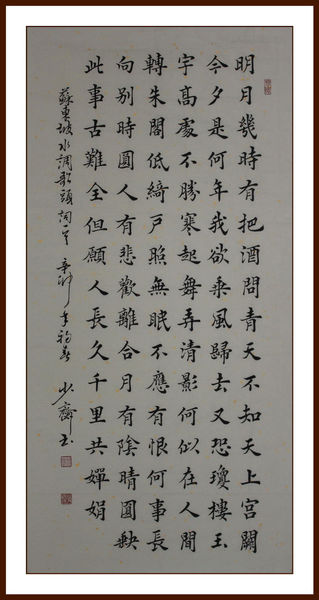 明月幾時有把酒問青天不知天上宮闕
今夕是何年我欲乘風歸去又恐瓊樓玉
宇高處不勝寒起舞弄清影何似在人間
轉朱閣低綺戶照無眠不應有恨何事長
向別時圓人有悲歡離合月有陰晴圓缺
此事古難全但願人長久千里共嬋娟
蘇東坡水調歌頭詞一首 辛卯年初春 少齋書